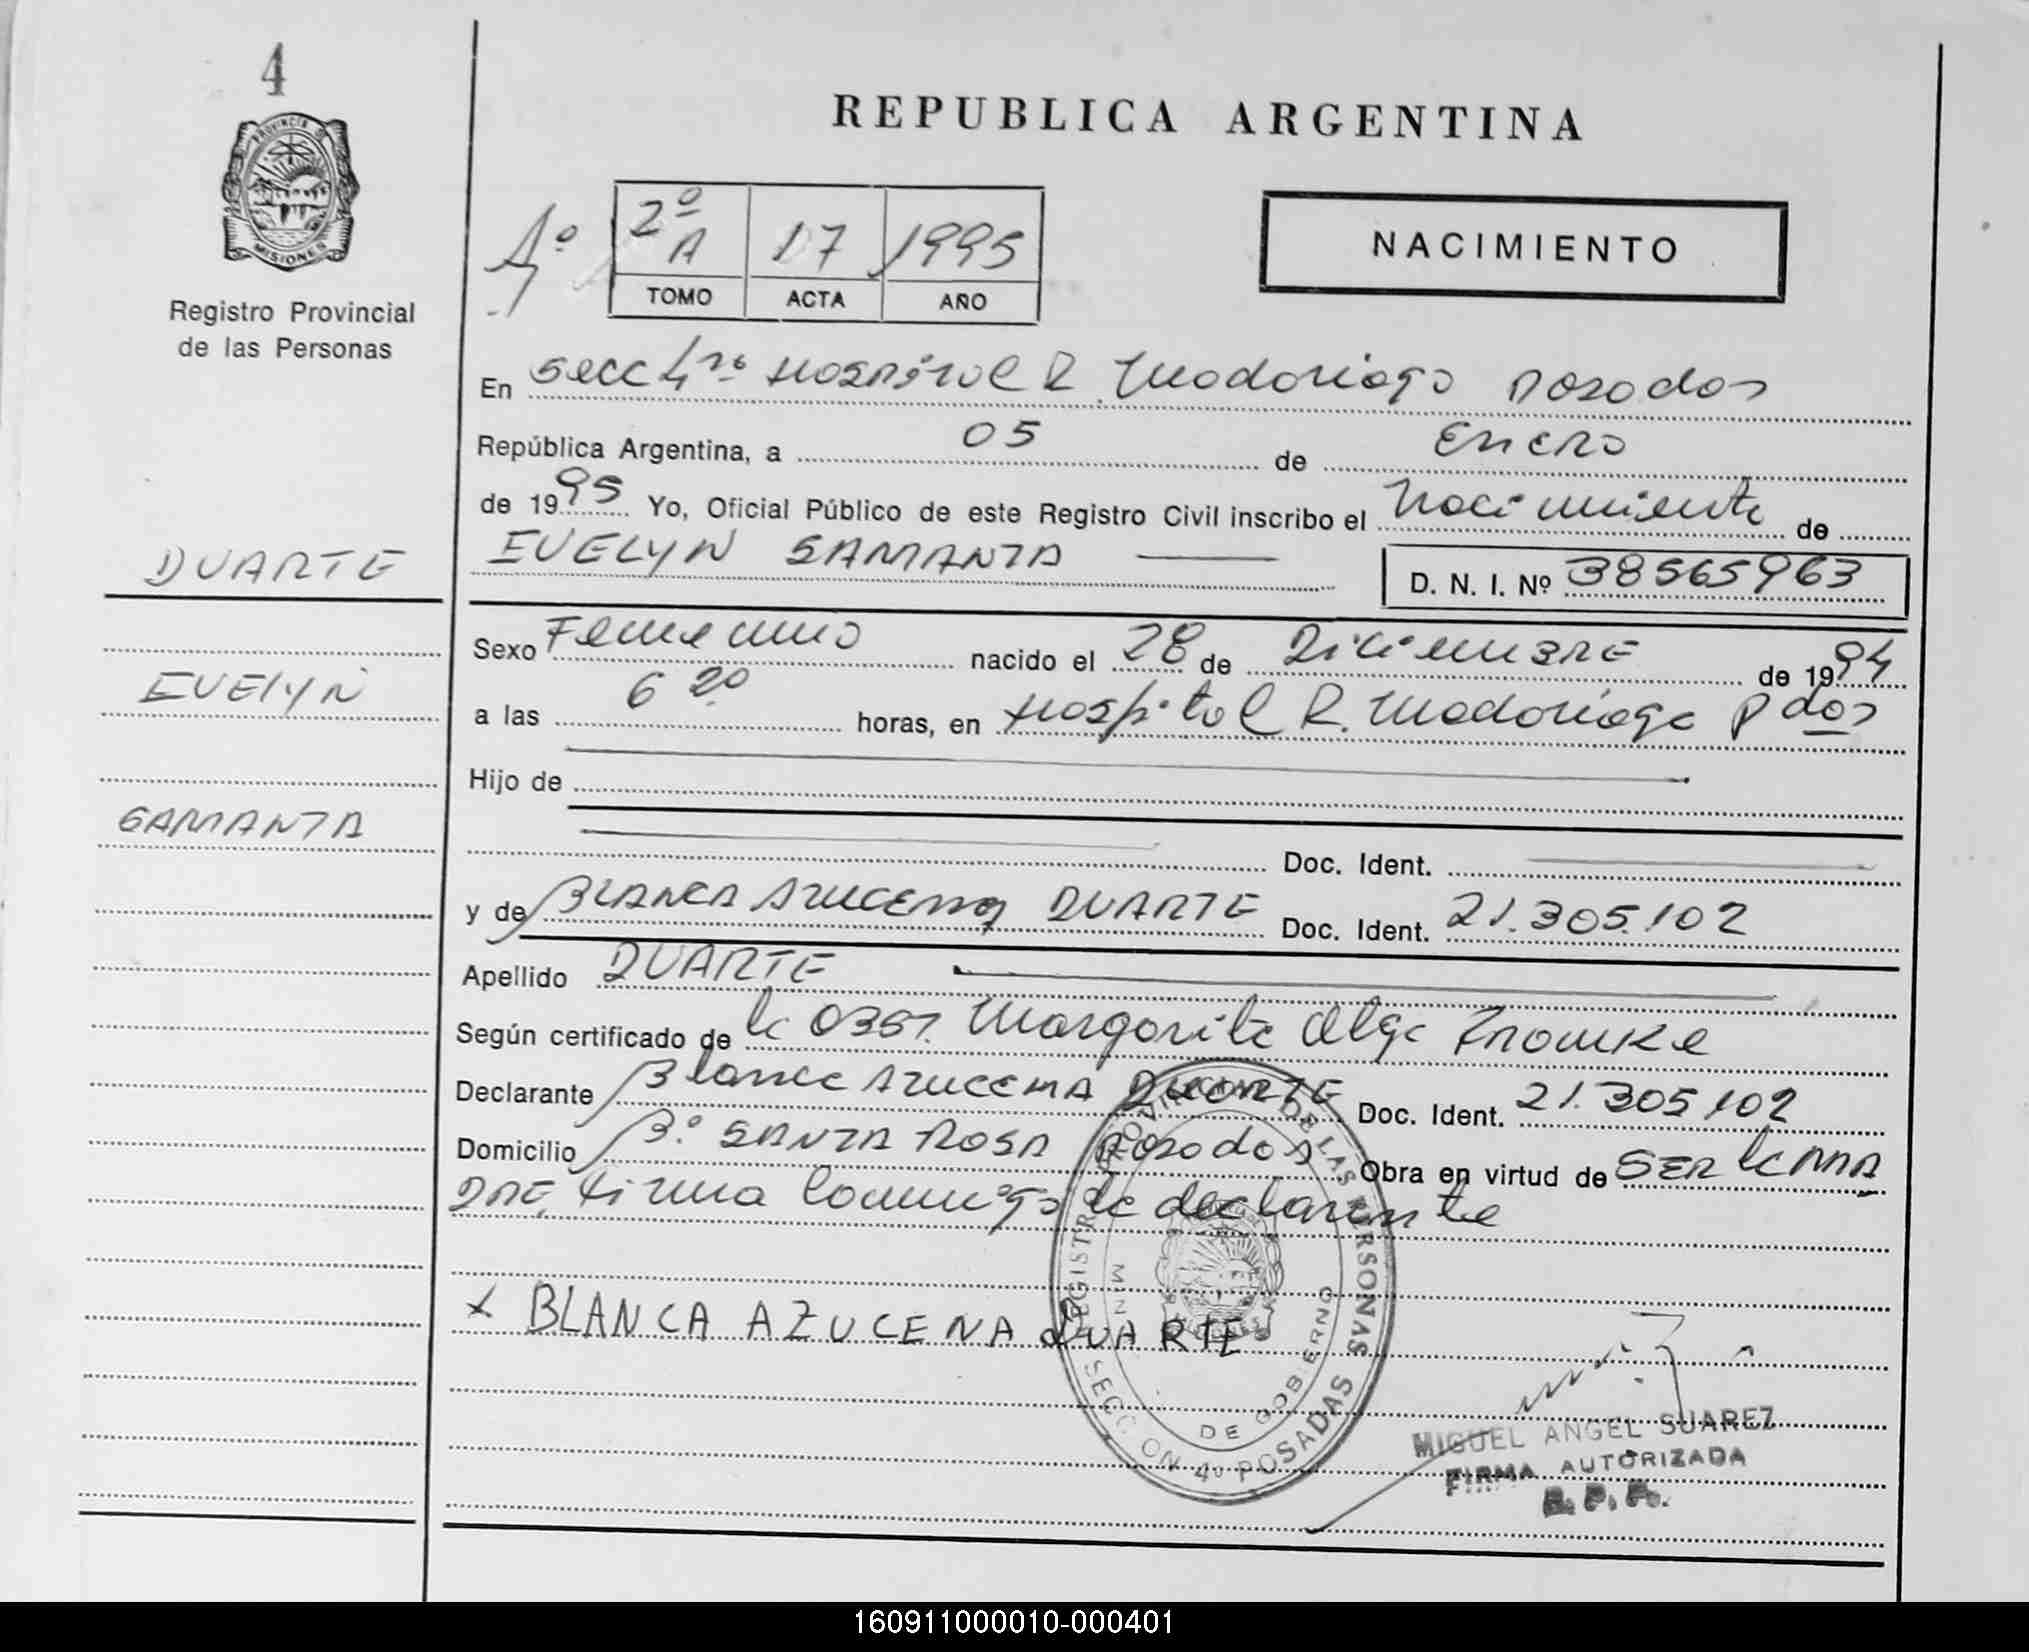 4
PROVINCIA DE
MISIONES
Registro Provincial
de las Personas
REPUBLICA ARGENTINA
4º
2º A 17 1995
TOMO ACTA AÑO
NACIMIENTO
En Secc 4ta Hospital R. Madariaga Posadas
República Argentina, a 05 de Enero
de 1995 Yo, Oficial Público de este Registro Civil inscribo el Nacimiento de
DUARTE
EVELYN SAMANTA
D. N. I. Nº 38565963
EVELYN
SAMANTA
Sexo Femenino nacido el 28 de Diciembre de 1994
a las 6 20 horas, en Hospital R. Madariaga Pdas
Hijo de
Doc. Ident.
y de BLANCA AZUCENA DUARTE Doc. Ident. 21.305.102
Apellido DUARTE
Según certificado de la Obst. Margarita Olga
Declarante Blanca AZUCENA DUARTE Doc. Ident. 21.305.102
Domicilio Bº SANTA ROSA Posadas Obra en virtud de SER la MA
DRE, firma conmigo la declarante
X BLANCA AZUCENA DUARTE
REGISTRO PROVINCIAL DE LAS PERSONAS
SECCION 4º POSADAS
DE GOBIERNO
MIGUEL ANGEL SUAREZ
FIRMA AUTORIZADA
R. P. P.
160911000010-000401